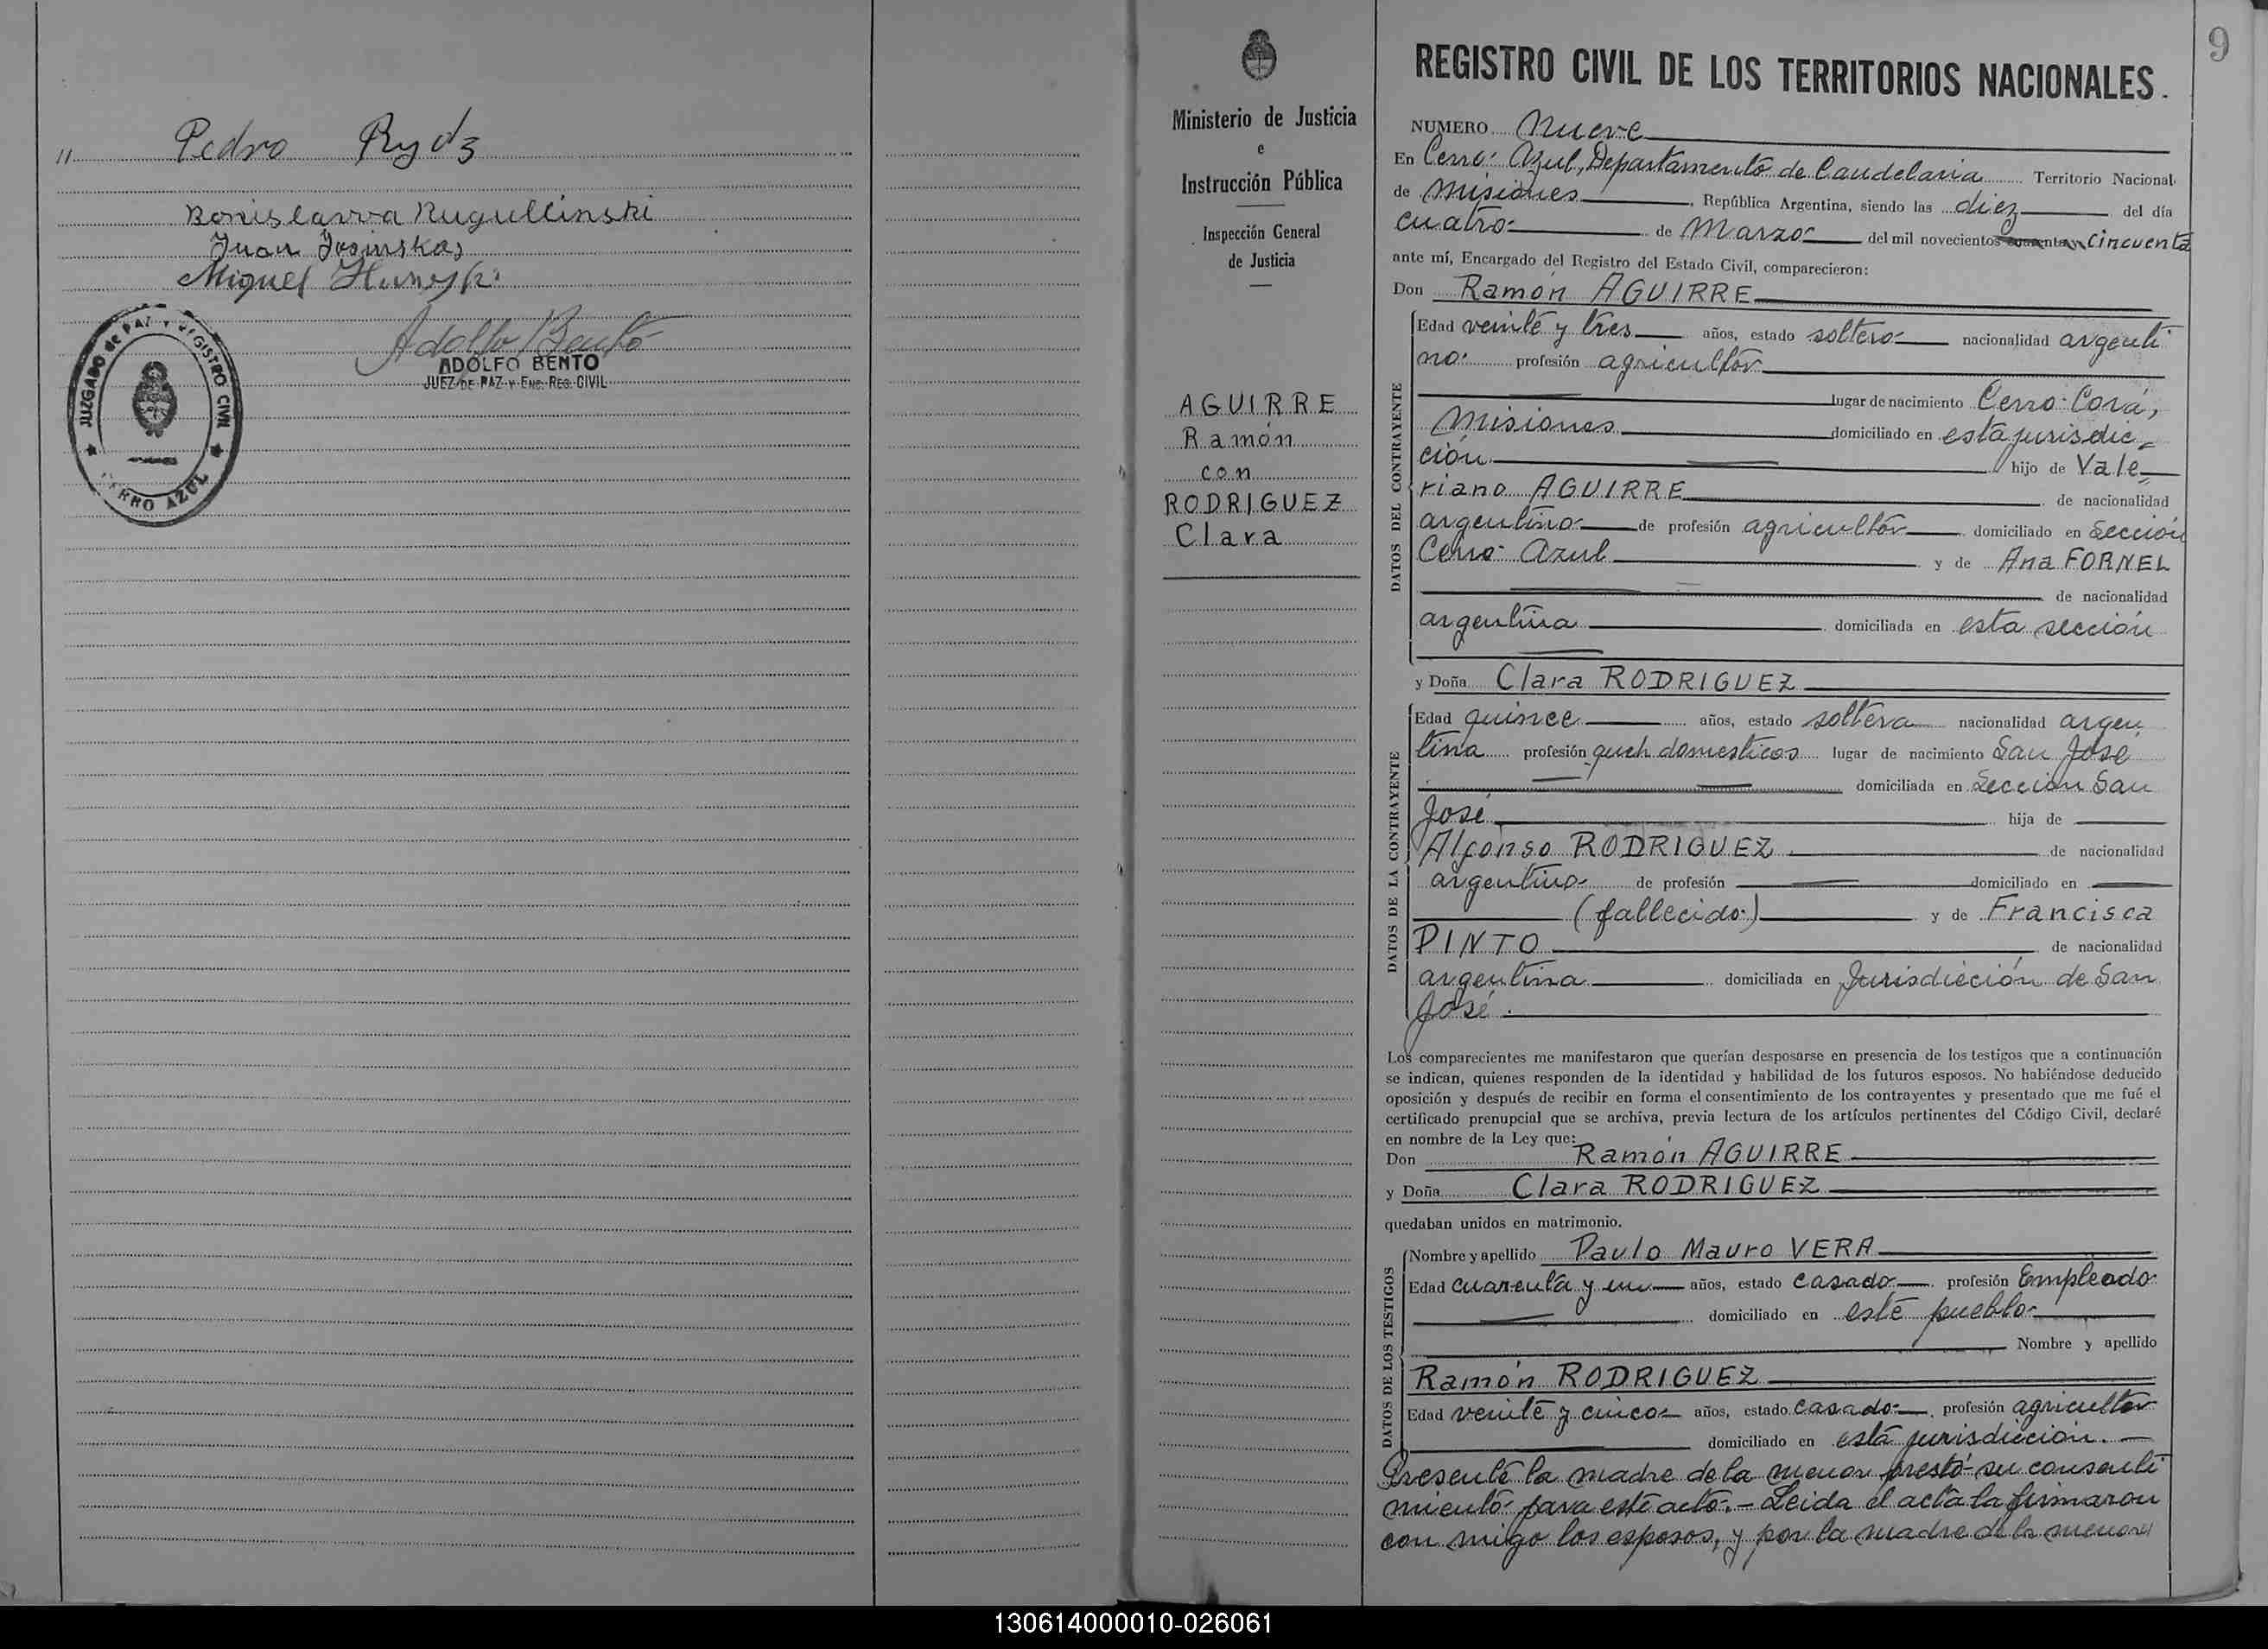 " Pedro Rydz
Juan
Miguel
Adolfo Bento
ADOLFO BENTO
JUEZ DE PAZ Y ENC. REG. CIVIL
JUZGADO de PAZ Y REGISTRO CIVIL
CERRO AZUL
Ministerio de Justicia
e
Instrucción Pública
Inspección General
de Justicia
AGUIRRE
Ramón
con
RODRIGUEZ
Clara
9
REGISTRO CIVIL DE LOS TERRITORIOS NACIONALES.
NUMERO Nueve
En Cerro Azul, Departamento de Candelaria Territorio Nacional
de Misiones, República Argentina, siendo las diez del día
cuatro de Marzo del mil novecientos cincuenta
ante mí, Encargado del Registro del Estado Civil, comparecieron:
Don Ramón AGUIRRE
DATOS DEL CONTRAYENTE
Edad veinte y tres años, estado soltero nacionalidad argenti
no profesión agricultor
lugar de nacimiento Cerro Corá,
Misiones domiciliado en esta jurisdic-
ción hijo de Vale-
riano AGUIRRE de nacionalidad
argentino de profesión agricultor domiciliado en Sección
Cerro Azul y de Ana FORNEL
de nacionalidad
argentina domiciliada en esta sección
y Doña Clara RODRIGUEZ
DATOS DE LA CONTRAYENTE
Edad quince años, estado soltera nacionalidad argen-
tina profesión queh. domesticos lugar de nacimiento San José
domiciliada en Sección San
José hija de
Alfonso RODRIGUEZ de nacionalidad
argentino de profesión domiciliado en
(fallecido) y de Francisca
PINTO de nacionalidad
argentina domiciliada en Jurisdicción de San
José.
Los comparecientes me manifestaron que querían desposarse en presencia de los testigos que a continuación
se indican, quienes responden de la identidad y habilidad de los futuros esposos. No habiéndose deducido
oposición y después de recibir en forma el consentimiento de los contrayentes y presentado que me fué el
certificado prenupcial que se archiva, previa lectura de los artículos pertinentes del Código Civil, declaré
en nombre de la Ley que:
Don Ramón AGUIRRE
y Doña Clara RODRIGUEZ
quedaban unidos en matrimonio.
DATOS DE LOS TESTIGOS
Nombre y apellido Paulo Mauro VERA
Edad cuarenta y un años, estado casado profesión Empleado
domiciliado en este pueblo
Nombre y apellido
Ramón RODRIGUEZ
Edad veinte y cinco años, estado casado profesión agricultor
domiciliado en esta jurisdicción.—
Presente la madre de la menor prestó su consenti
miento para este acto.— Leida el acta la firmaron
con migo los esposos, y por la madre de la menor
130614000010-026061